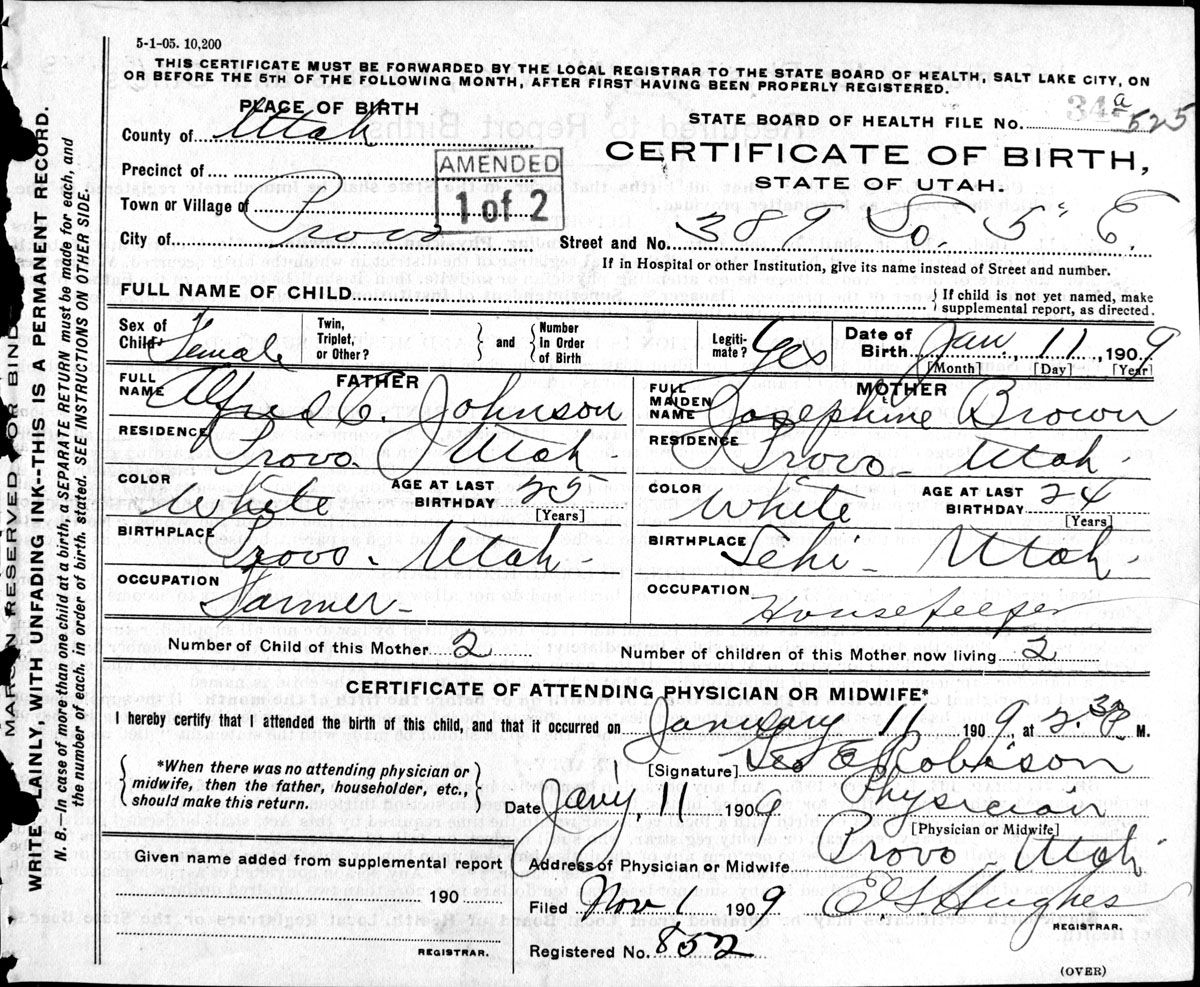 5-1-05. 10,200
THIS CERTIFICATE MUST BE FORWARDED BY THE LOCAL REGISTRAR TO THE STATE BOARD OF HEALTH, SALT LAKE CITY, ON
OR BEFORE THE 5TH OF THE FOLLOWING MONTH, AFTER FIRST HAVING BEEN PROPERLY REGISTERED.
PLACE OF BIRTH
STATE BOARD OF HEALTH FILE No. 34 a 525
County of Utah
CERTIFICATE OF BIRTH,
STATE OF UTAH.
Precinct of
AMENDED
1 of 2
Town or Village of
City of Provo
Street and No. 389 So. 5" E.
If in Hospital or other Institution, give its name instead of Street and number.
FULL NAME OF CHILD
If child is not yet named, make
supplemental report, as directed.
Sex of Child Female
Twin, Triplet, or Other?
and
Number In Order of Birth
Legitimate? Yes
Date of Birth Jan, 11, 1909
[Month] [Day] [Year]
FATHER
FULL NAME Alfred C. Johnson
RESIDENCE Provo. Utah
COLOR White AGE AT LAST BIRTHDAY 25
[Years]
BIRTHPLACE Provo - Utah -
OCCUPATION Farmer -
MOTHER
FULL MAIDEN NAME Josephine Brown
RESIDENCE Provo - Utah
COLOR White AGE AT LAST BIRTHDAY 24
[Years]
BIRTHPLACE Lehi - Utah
OCCUPATION Housekeeper
Number of Child of this Mother 2
Number of children of this Mother now living 2
CERTIFICATE OF ATTENDING PHYSICIAN OR MIDWIFE*
I hereby certify that I attended the birth of this child, and that it occurred on January 11 1909, at 2.30 P M.
*When there was no attending physician or
midwife, then the father, householder, etc.,
should make this return.
[Signature] Geo E Robison
Date Jany, 11 1909
Physician
[Physician or Midwife]
Given name added from supplemental report
190
REGISTRAR.
Address of Physician or Midwife Provo Utah
Filed Nov 1 1909
E G Hughes
REGISTRAR.
Registered No. 852
(OVER)
MARGIN RESERVED FOR BIND
WRITE PLAINLY, WITH UNFADING INK--THIS IS A PERMANENT RECORD.
N. B.—In case of more than one child at a birth, a SEPARATE RETURN must be made for each, and
the number of each, in order of birth, stated. SEE INSTRUCTIONS ON OTHER SIDE.